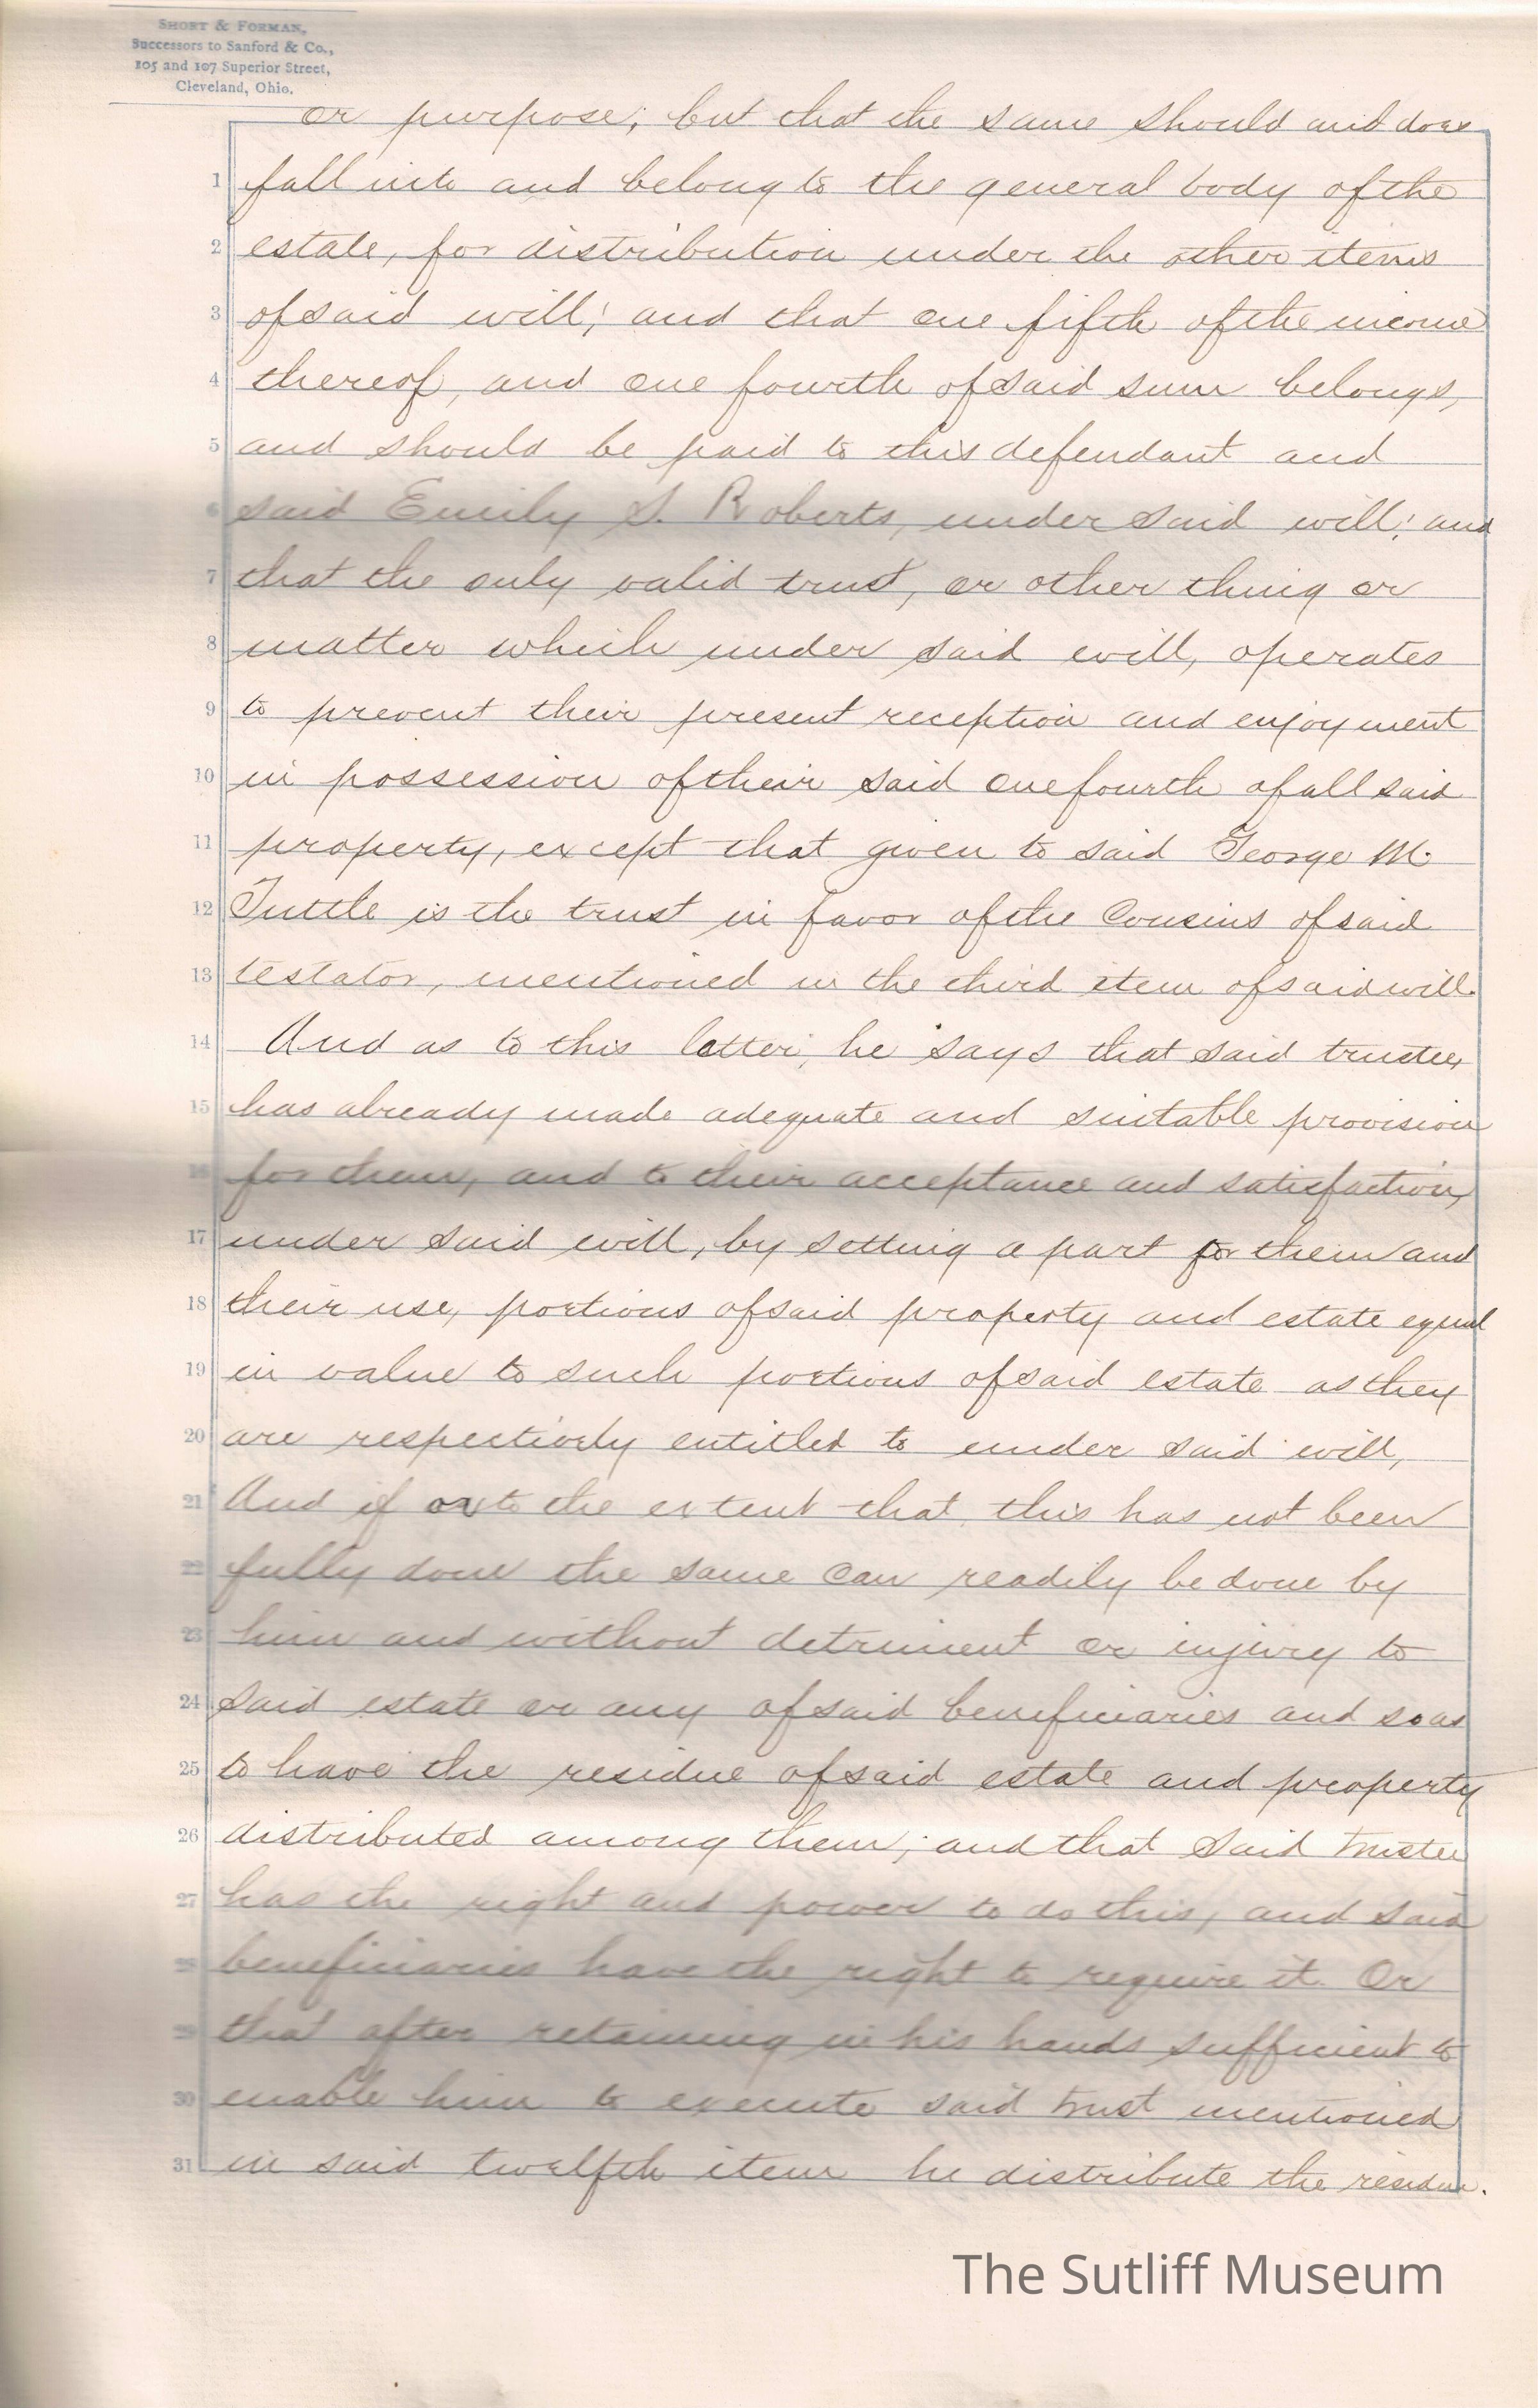 SHORT & FORMAN,
Successors to Sanford & Co.,
105 and 107 Superior Street,
Cleveland, Ohio.
or purpose; but that the same should and does
1 fall into and belong to the general body of the
2 estate, for distribution under the other items
3 of said will; and that one fifth of the income
4 thereof, and one fourth of said sum belongs,
5 and should be paid to this defendant and
6 said Emily S. Roberts, under said will; and
7 that the only valid trust, or other thing or
8 matter which under said will, operates
9 to prevent their present reception and enjoyment
10 in possession of their said one fourth of all said
11 property, except that given to said George M.
12 Tuttle is the trust in favor of the Cousins of said
13 testator, mentioned in the third item of said will.
14 And as to this latter, he says that said trustee,
15 has already made adequate and suitable provision
16 for them, and to their acceptance and satisfaction,
17 under said will, by setting a part for them and
18 their use, portions of said property and estate equal
19 in value to such portions of said estate as they
20 are respectively entitled to under said will,
21 And if or to the extent that this has not been
22 fully done the same can readily be done by
23 him and without detriment or injury to
24 said estate or any of said beneficiaries and so as
25 to have the residue of said estate and property
26 distributed among them; and that said trustee
27 has the right and power to do this, and said
28 beneficiaries have the right to require it. Or
29 that after retaining in his hands sufficient to
30 enable him to execute said trust mentioned
31 in said twelfth item he distribute the residue.
The Sutliff Museum